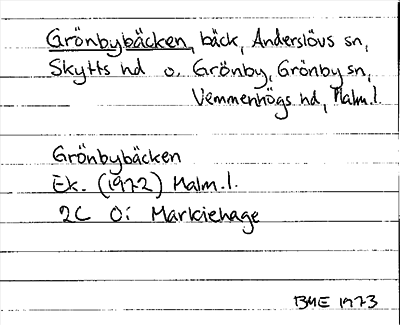 Grönbybäcken, bäck, Anderslövs sn,
Skytts hd o. Grönby, Grönby sn,
Vemmenhögs hd, Malm.l.
Grönbybäcken
Ek. (1972) Malm.l.
2C 0i Markiehage
BME 1973